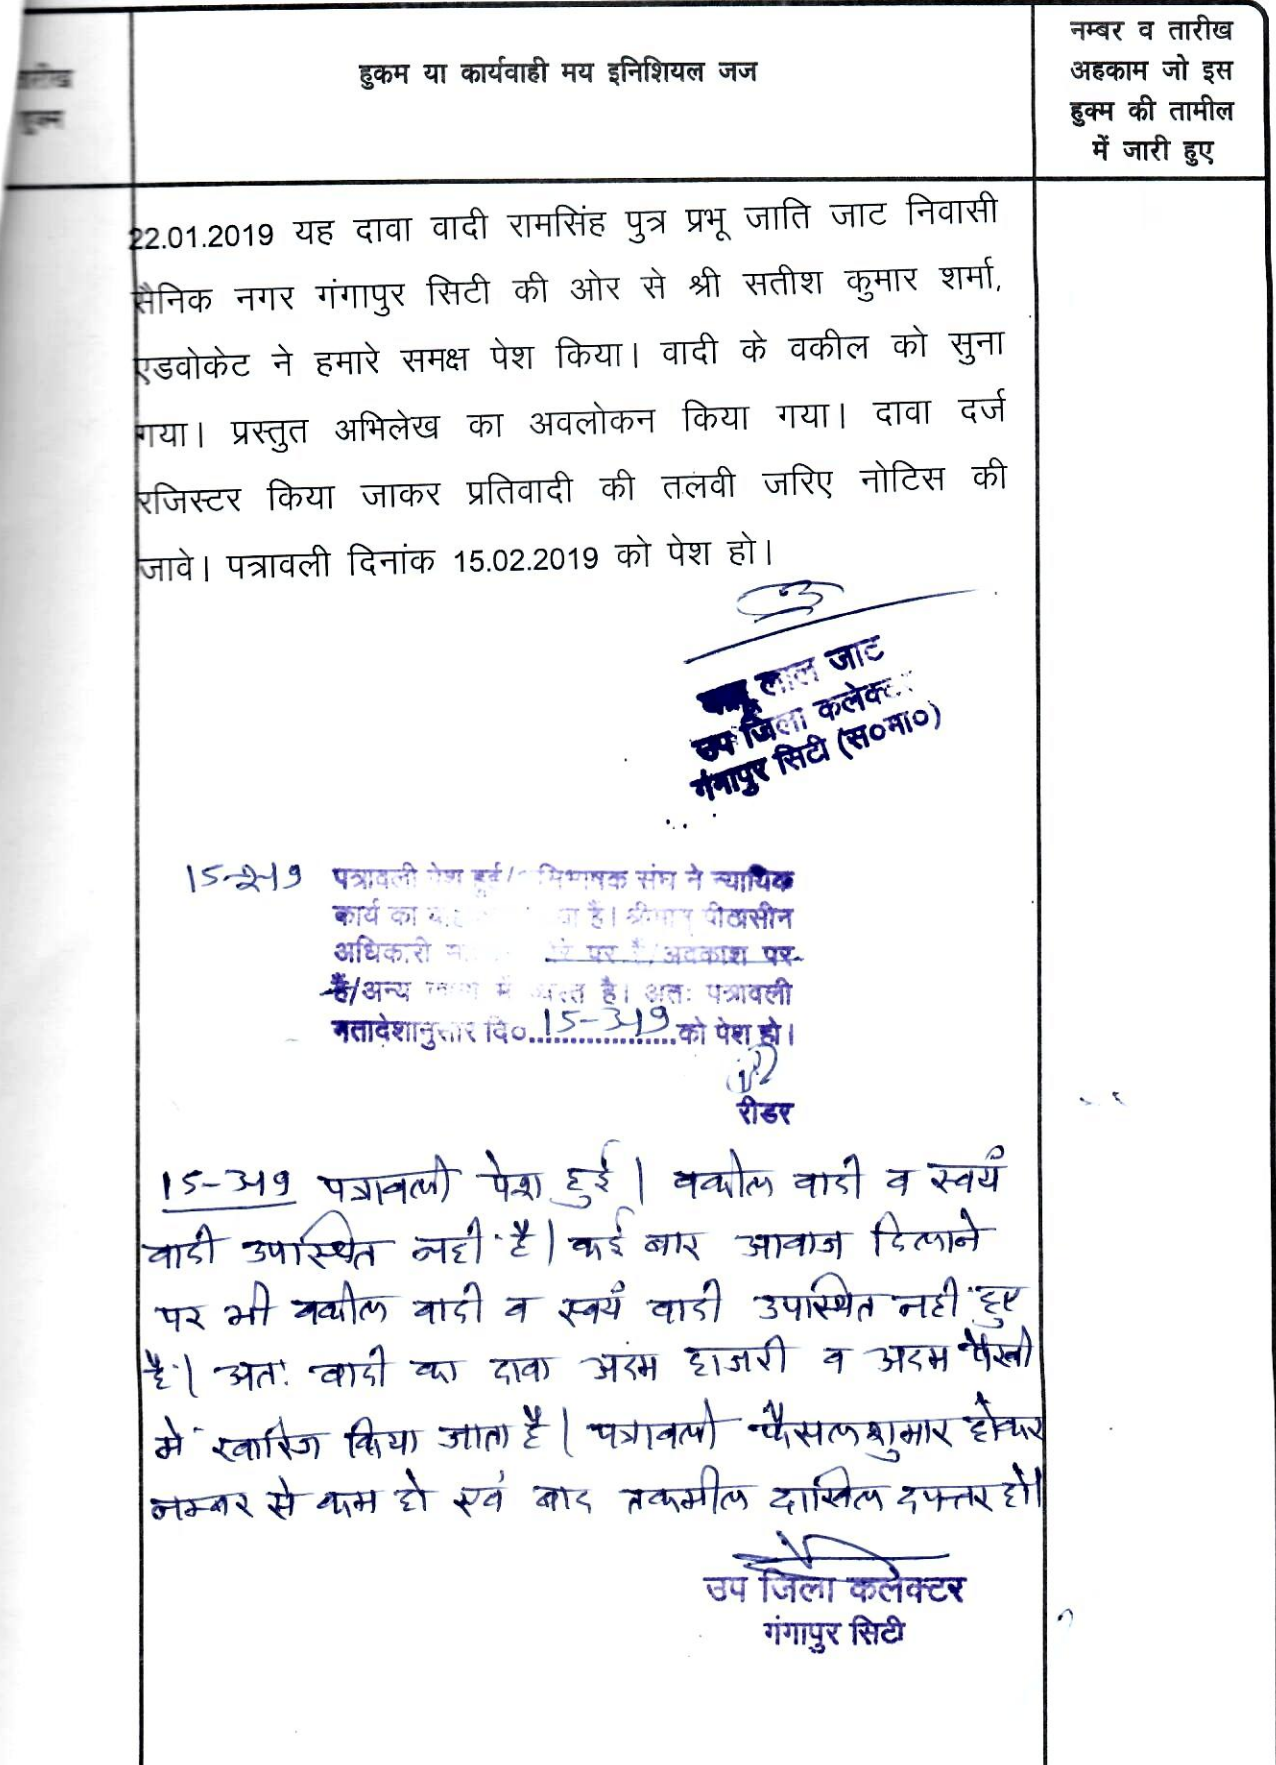 तारीख
हुक्म
हुकम या कार्यवाही मय इनिशियल जज
नम्बर व तारीख
अहकाम जो इस
हुक्म की तामील
में जारी हुए
22.01.2019 यह दावा वादी रामसिंह पुत्र प्रभू जाति जाट निवासी
सैनिक नगर गंगापुर सिटी की ओर से श्री सतीश कुमार शर्मा,
एडवोकेट ने हमारे समक्ष पेश किया। वादी के वकील को सुना
गया। प्रस्तुत अभिलेख का अवलोकन किया गया। दावा दर्ज
रजिस्टर किया जाकर प्रतिवादी की तलवी जरिए नोटिस की
जावे। पत्रावली दिनांक 15.02.2019 को पेश हो।
लाल जाट
उप जिला कलेक्टर
गंगापुर सिटी (स०मा०)
15-2-19 पत्रावली पेश हुई/अभिभाषक संघ ने न्यायिक
कार्य का है। श्रीमान् पीठासीन
अधिकारी पर है/अवकाश पर
है/अन्य में व्यस्त है। अतः पत्रावली
मतादेशानुसार दि० 15-3-19 को पेश हो।
रीडर
15-3-19 पत्रावली पेश हुई। वकील वादी व स्वयं
वादी उपस्थित नहीं है। कई बार आवाज दिलाने
पर भी वकील वादी व स्वयं वादी उपस्थित नहीं हुए
है। अतः वादी का दावा अदम हाजरी व अदम पैरवी
में खारिज किया जाता है। पत्रावली फैसल शुमार होकर
नम्बर से कम हो एवं बाद तकमील दाखिल दफ्तर हो।
उप जिला कलेक्टर
गंगापुर सिटी